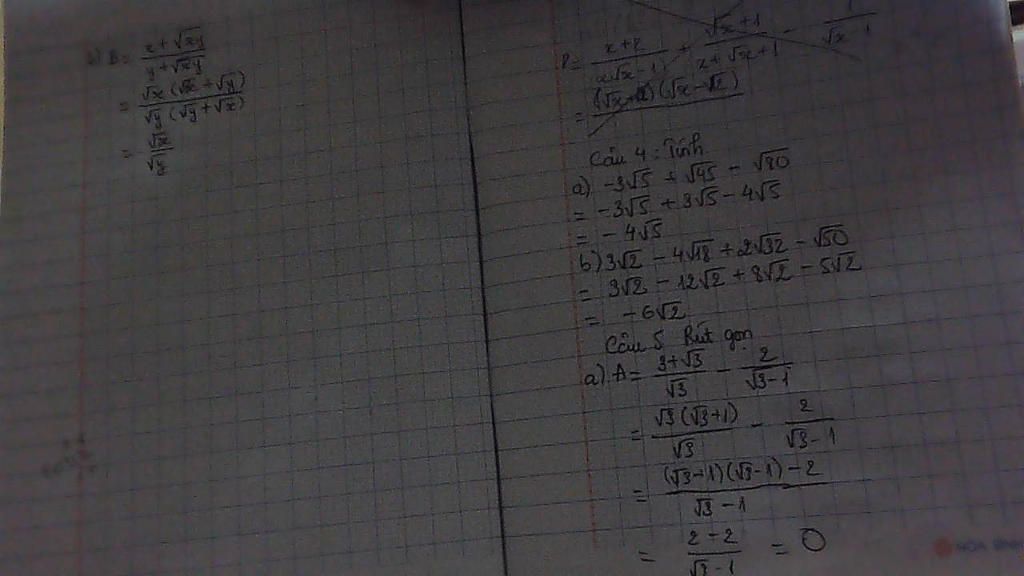 b) B = \frac{x + \sqrt{xy}}{y + \sqrt{xy}}
= \frac{\sqrt{x} (\sqrt{x} + \sqrt{y})}{\sqrt{y} (\sqrt{y} + \sqrt{x})}
= \frac{\sqrt{x}}{\sqrt{y}}
P = \frac{x+2}{x\sqrt{x} - 1} + \frac{\sqrt{x} + 1}{x + \sqrt{x} + 1} - \frac{1}{\sqrt{x} - 1}
Câu 4 : Tính
a) -3√5 + √45 - √80
= -3√5 + 3√5 - 4√5
= -4√5
b) 3√2 - 4√18 + 2√32 - √50
= 3√2 - 12√2 + 8√2 - 5√2
= -6√2
Câu 5 Rút gọn
a) A = \frac{3+\sqrt{3}}{\sqrt{3}} - \frac{2}{\sqrt{3}-1}
= \frac{\sqrt{3}(\sqrt{3}+1)}{\sqrt{3}} - \frac{2}{\sqrt{3}-1}
= \frac{(\sqrt{3}+1)(\sqrt{3}-1) - 2}{\sqrt{3}-1}
= \frac{2-2}{\sqrt{3}-1} = 0